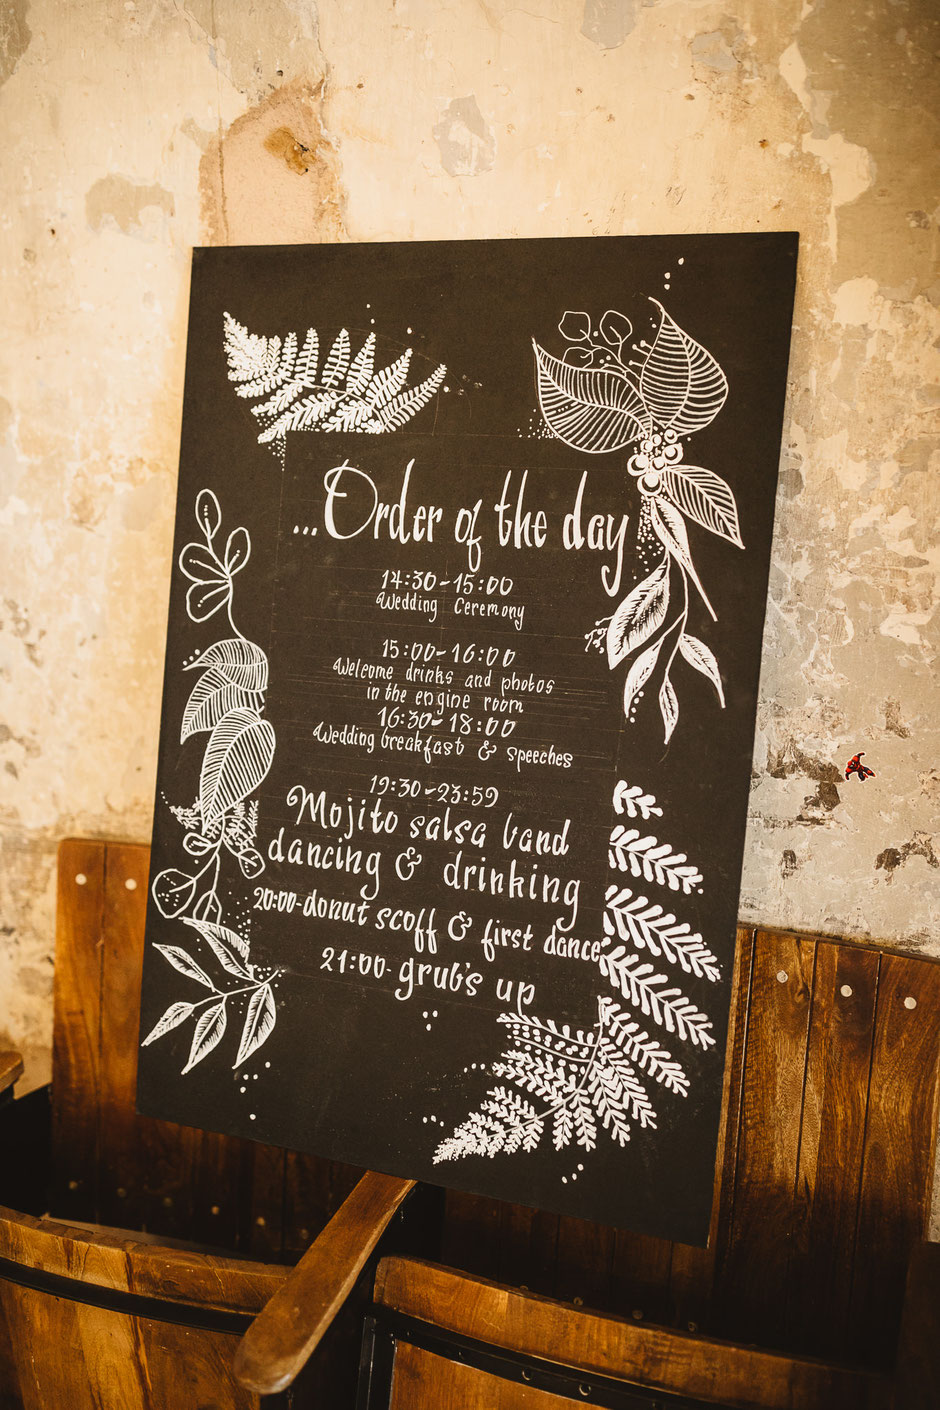 ...Order of the day
14:30-15:00
Wedding Ceremony
15:00-16:00
Welcome drinks and photos
in the engine room
16:30-18:00
Wedding breakfast & speeches
19:30-23:59
Mojito salsa band
dancing & drinking
20:00-donut scoff & first dance
21:00-grub's up